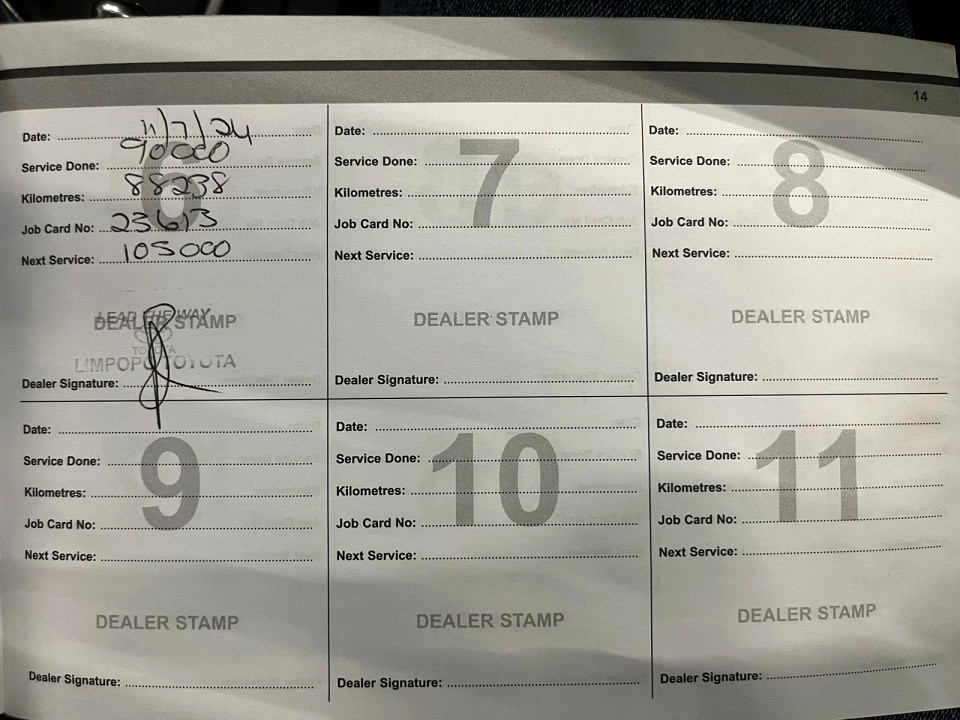 14
Date: 11/7/24
Service Done: 90000
6
Kilometres: 88238
Job Card No: 23613
Next Service: 105000
LEAD THE WAY
DEALER STAMP
TOYOTA
LIMPOPO TOYOTA
Dealer Signature:
Date:
7
Service Done:
Kilometres:
Job Card No:
Next Service:
DEALER STAMP
Dealer Signature:
Date:
8
Service Done:
Kilometres:
Job Card No:
Next Service:
DEALER STAMP
Dealer Signature:
Date:
9
Service Done:
Kilometres:
Job Card No:
Next Service:
DEALER STAMP
Dealer Signature:
Date:
10
Service Done:
Kilometres:
Job Card No:
Next Service:
DEALER STAMP
Dealer Signature:
Date:
11
Service Done:
Kilometres:
Job Card No:
Next Service:
DEALER STAMP
Dealer Signature: